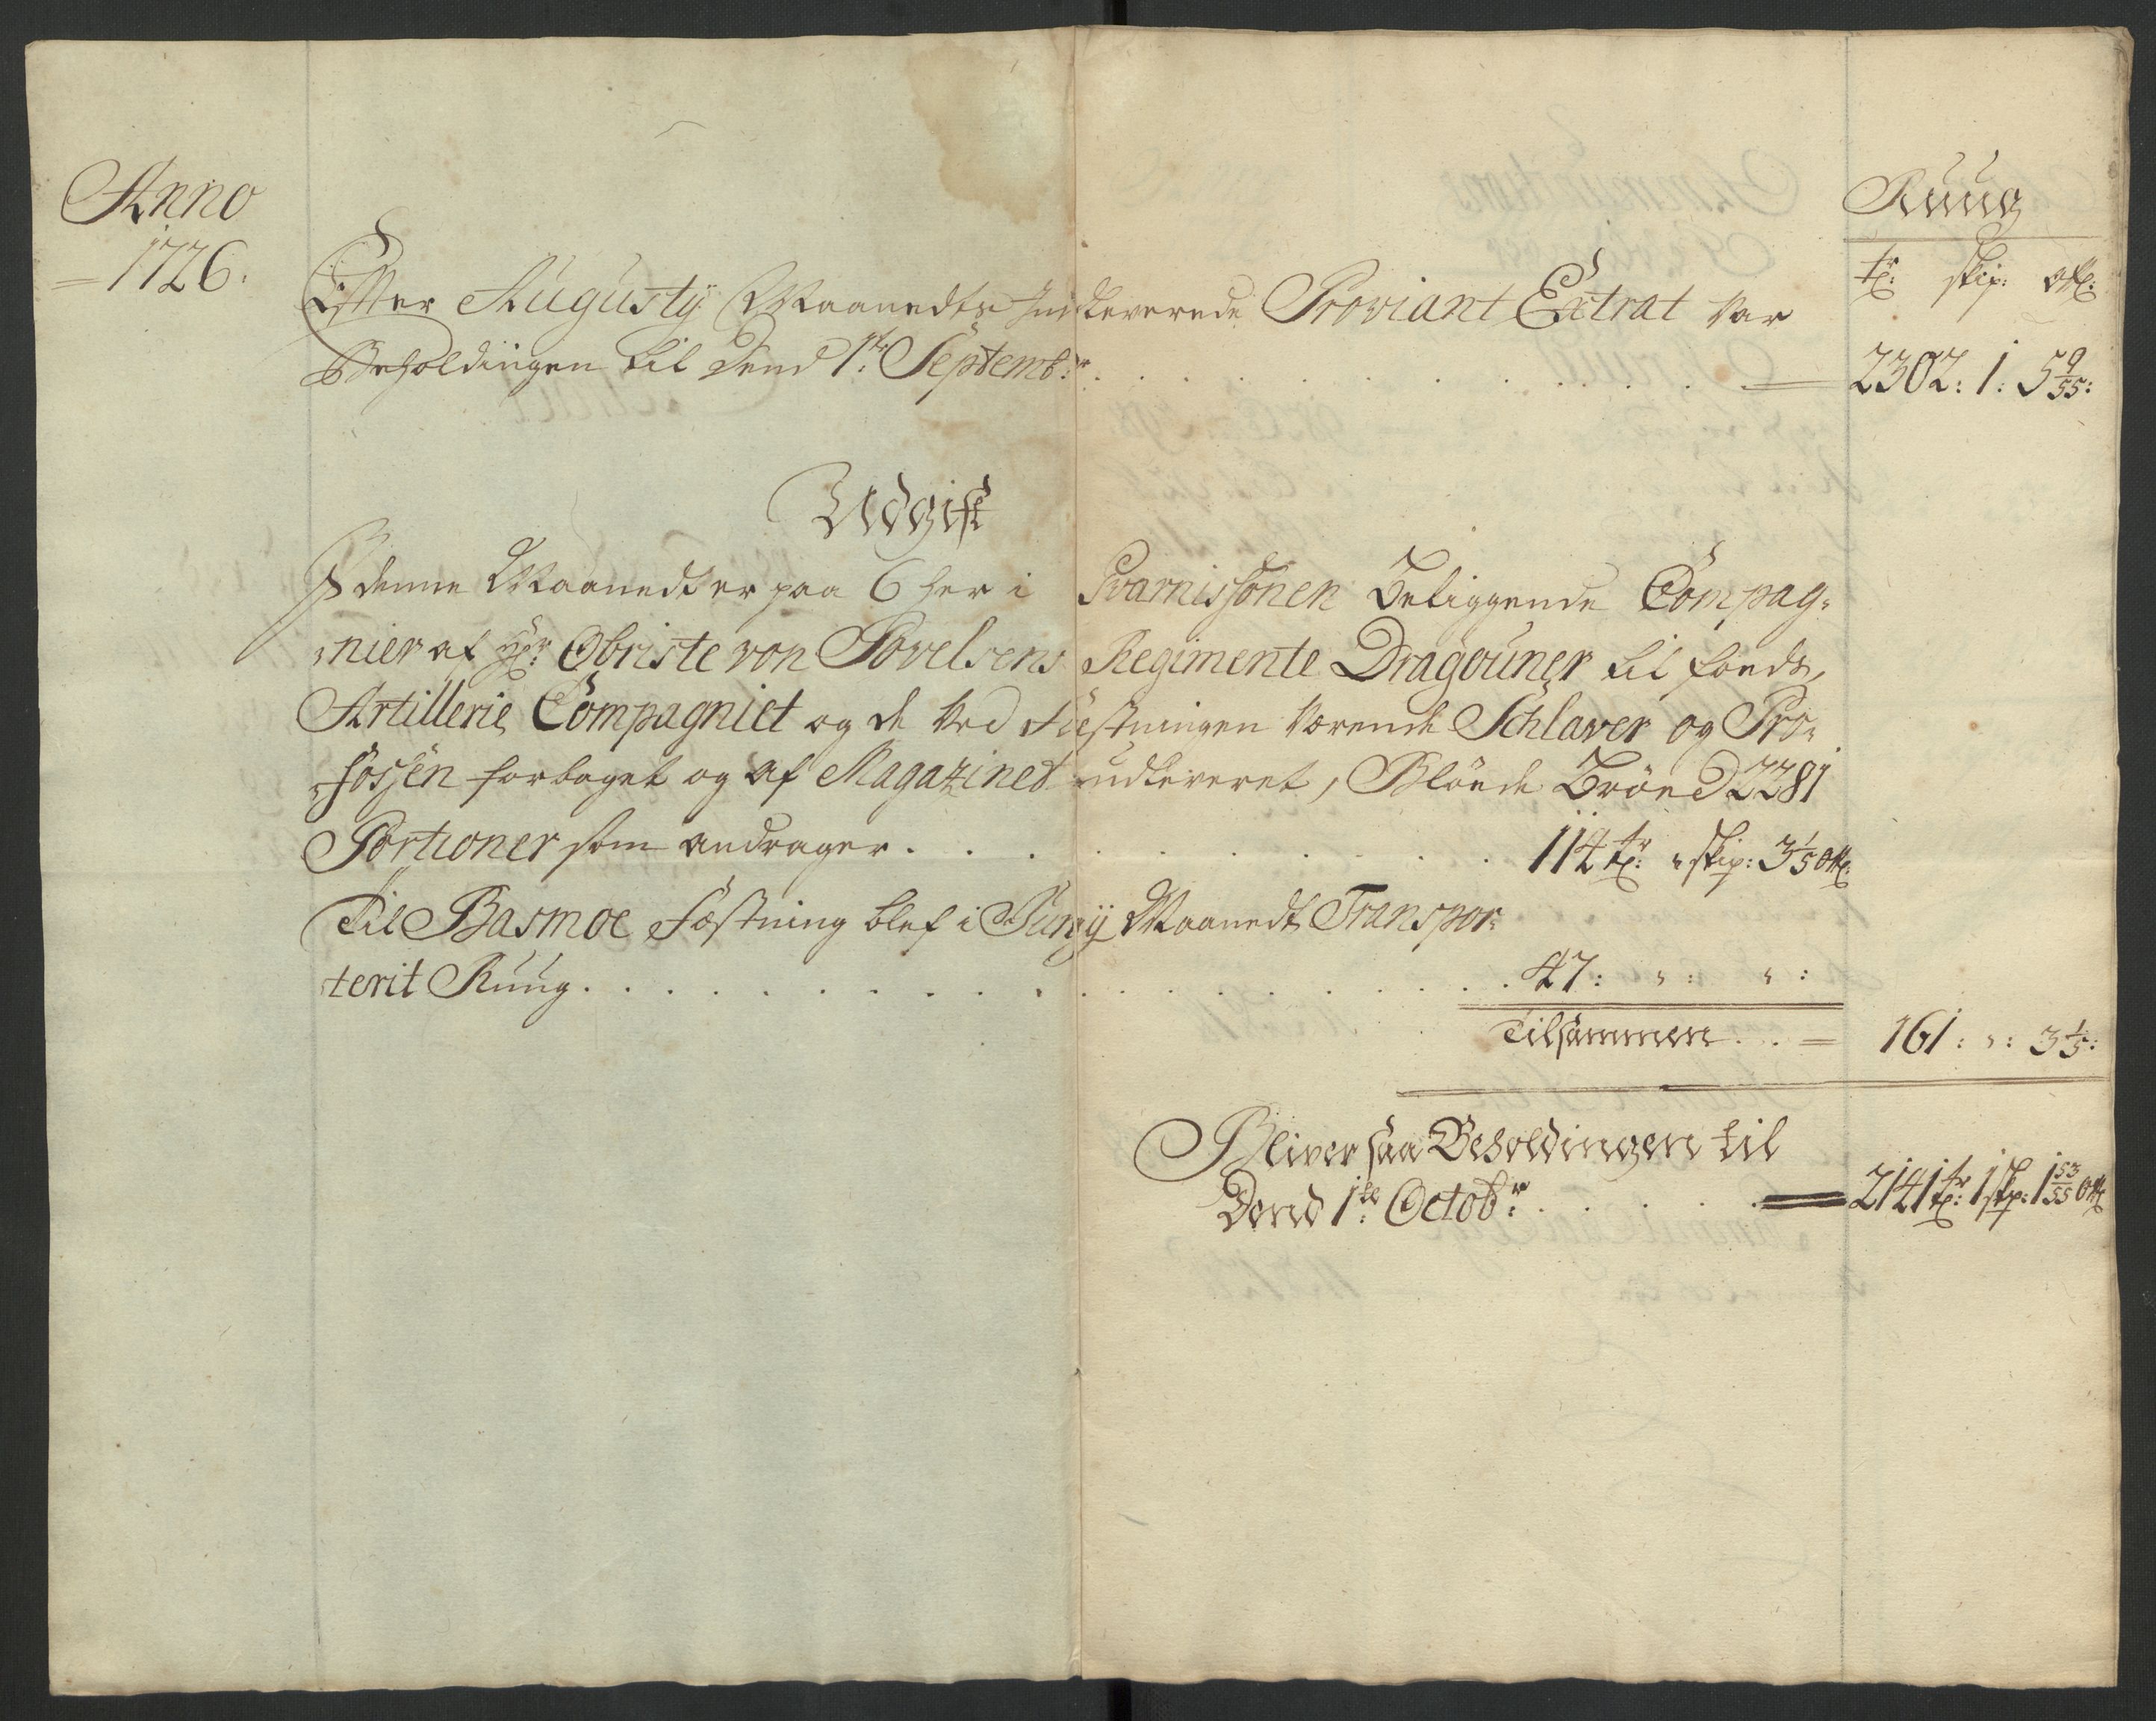 Anno
1726.
Ruug
tr: skip: otk:
Efter Augusty Maanedts Indleverede Proviant Extrat var
Beholdingen til Dend 1te Septembr: . . . . . . . . . . . 2302: 1: 5 9/55:
Udgift
J denne Maanedt er paa 6 her i Gvarnissonen Beliggende Compag-
nier af Hr: Obriste von Povelsens Regimente Dragouner til foeds,
Artillerie Compagniet og de ved Fæstningen værende Schlaver og Pro-
fossen forbaget og af Magazinet udleveret, Blönde Bröed 2281
Portioner som andrager . . . . . . . . . . 114 tr: " skip: 3 1/5 otk:
Til Basmoe Fæstning blef i Junij Maanedt Transpor-
terit Ruug . . . . . . . . . . . . . . . . 47: " : " :
Tilsammen . . = 161: " : 3 1/5:
Bliver saa Beholdingen til
Dend 1te Octobr: . . . . . 2141 tr: 1 skp: 1 53/55 otk